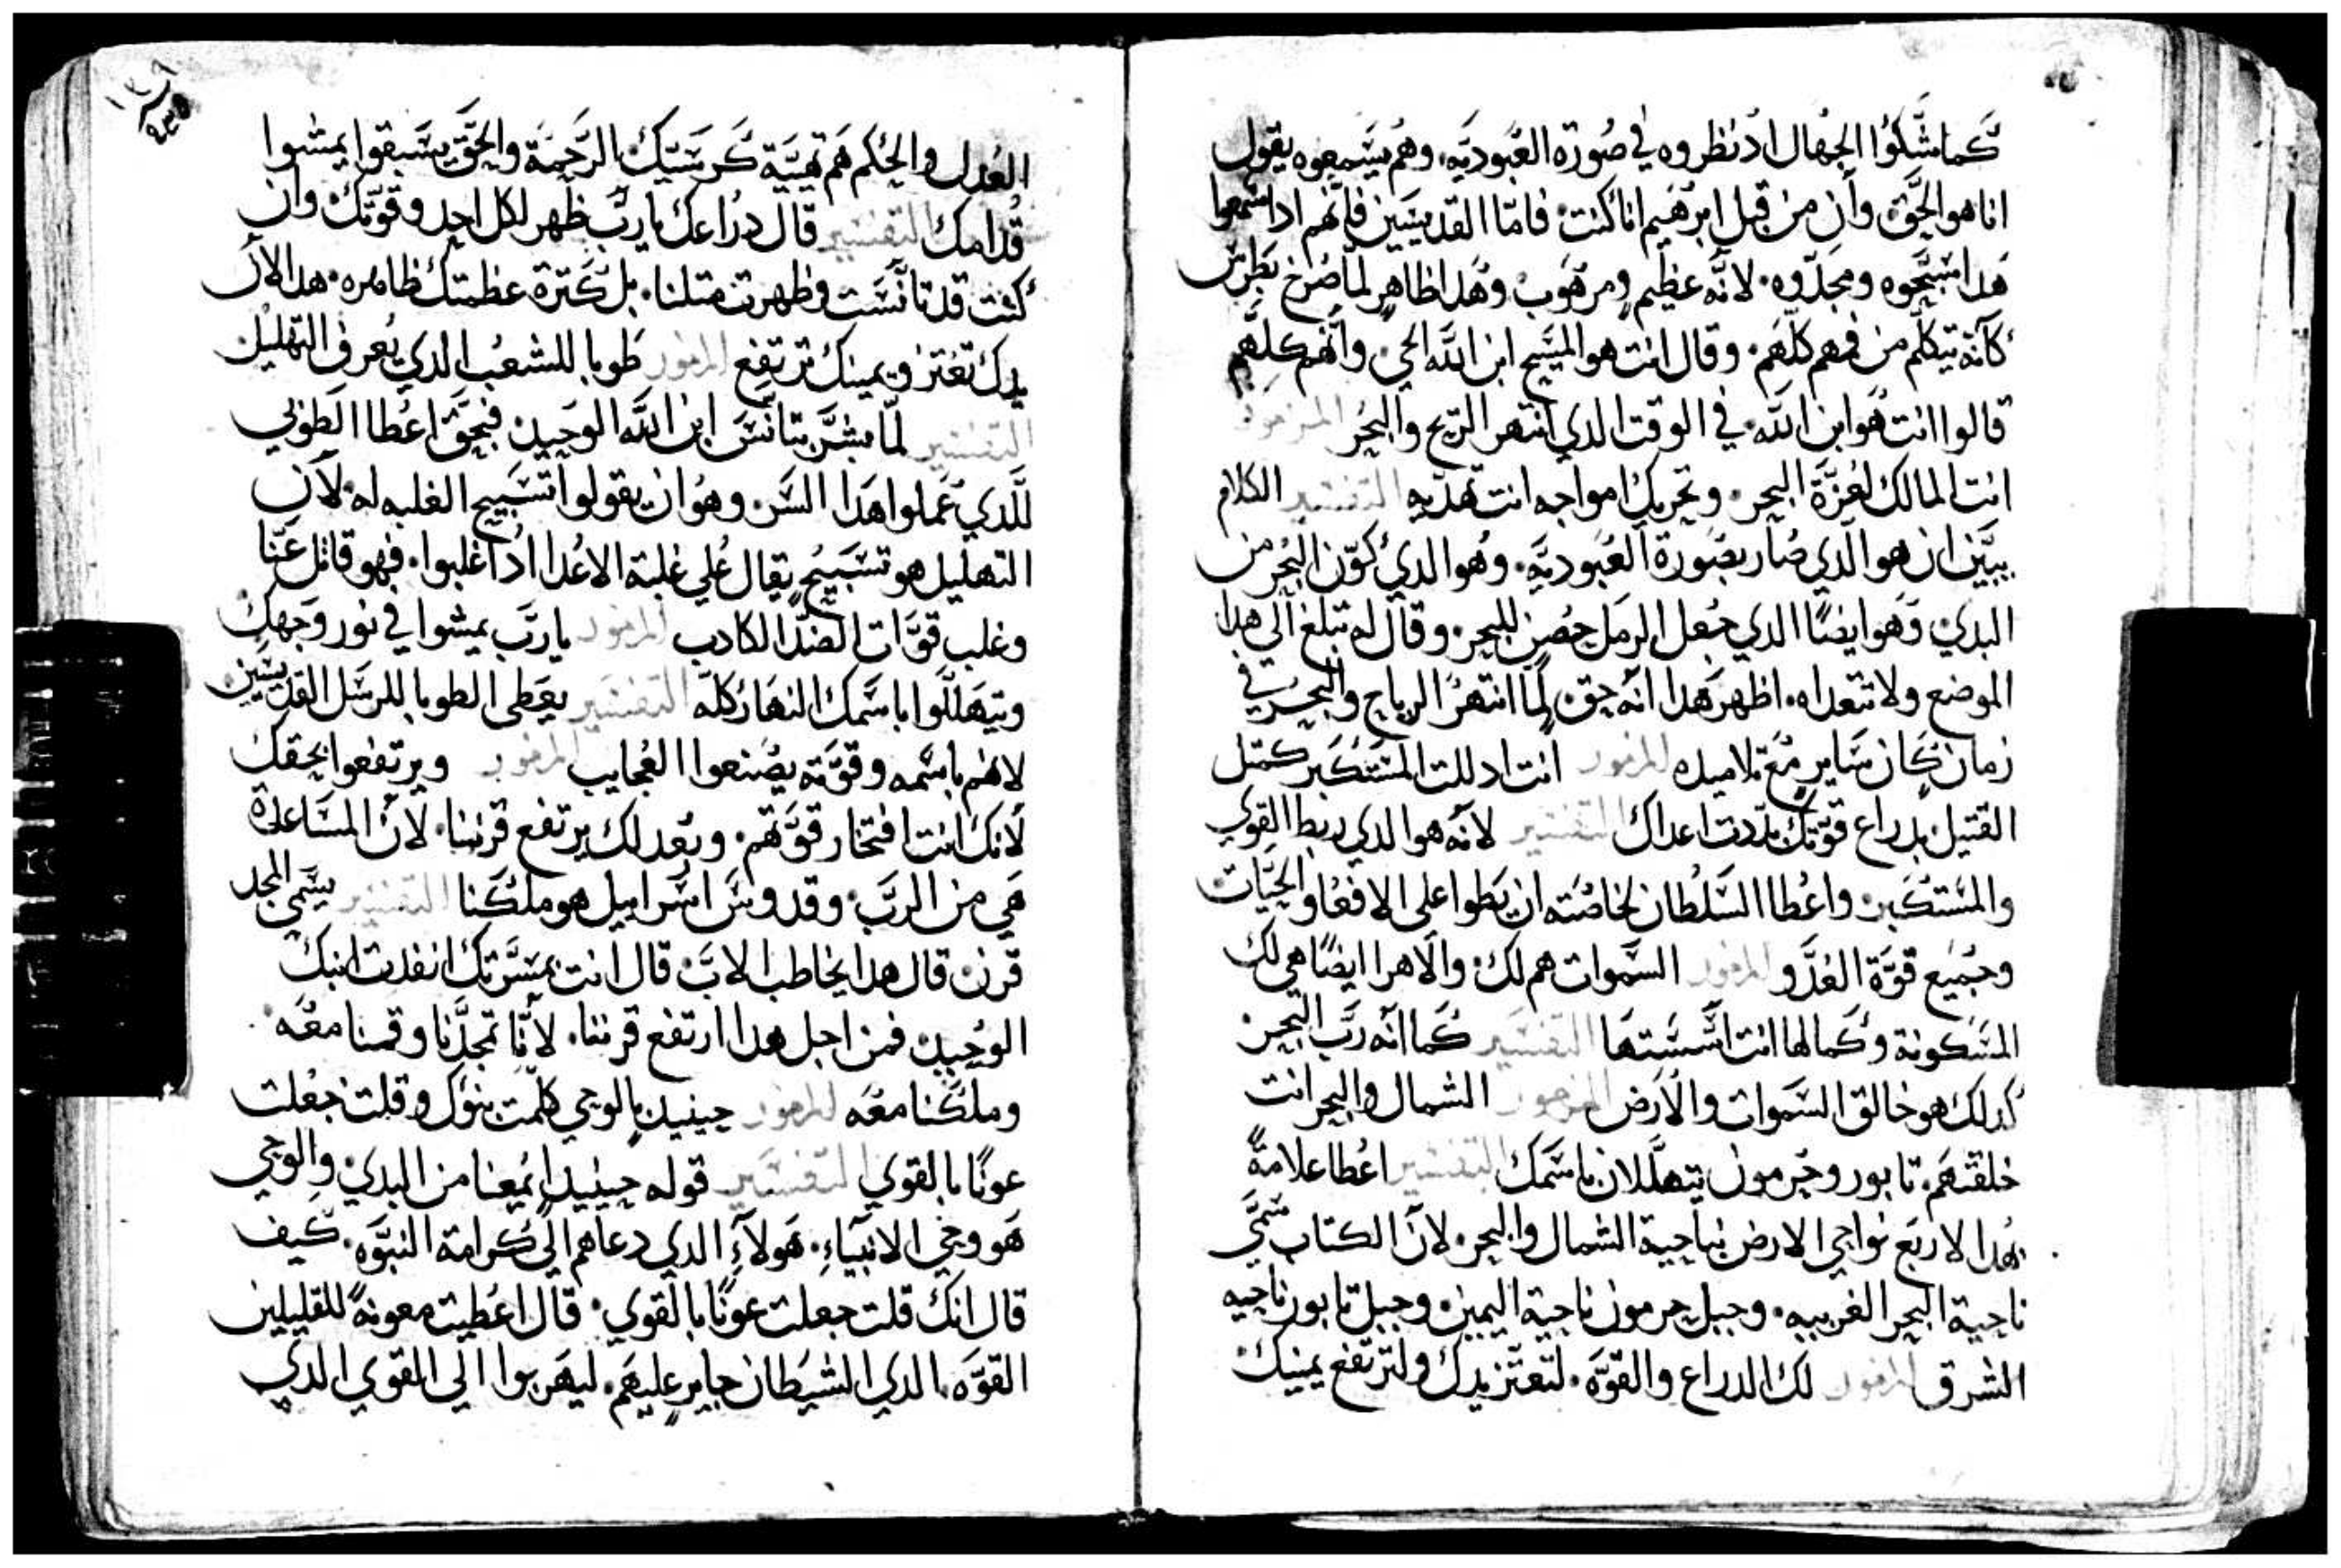 كما شكوا الجهال اد نظروه في صورة العبوديه، وهم يسمعوه يقول
انا هو الحق وان من قبل ابرهيم انا كنت فاما القديسين فانهم ادا سمعوا
هدا سبحوه ومجدوه. لانه عظيم ومرهوب وهدا ظاهر لما صرخ بطرس
كانه يتكلم من فمهم كلهم. وقال انت هو المسيح ابن الله الحي وانهم كلهم
قالوا انت هو ابن الله في الوقت الدي انتهر الريح والبحر المزمور
انت المالك لعزة البحر. وتحريك امواجه انت تهديه التفسير الكلام
يبين ان هو الدي صار بصورة العبودية. وهو الدي كون البحر من
البدي وهو ايضا الدي جعل الرمل حصن للبحر. وقال له تبلغ الي هدا
الموضع ولا تتعداه. اظهر هدا انه حق لما انتهر الرياح والبحر في
زمان كان ساير مع تلاميده المزمور انت ادللت المستكبر كمتل
القتيل بدراع قوتك بددت اعداك التفسير لانه هو الدي ربط القوي
والمستكبر واعطا السلطان لخاصته ان يطوا علي الافعا والحيات
وجميع قوة العدو المزمور السموات هم لك والاهرا ايضا هي لك
المسكونة وكمالها انت اسستها التفسير كما انه رب البحر
كدلك هو خالق السموات والارض المزمور الشمال والبحر انت
خلقتهم. تابور وحرمون يتهللان باسمك التفسير اعطا علامة
بهدا الاربع نواحي الارض بناحية الشمال والبحر. لان الكتاب سمي
ناحية البحر الغربيه. وجبل حرمون ناحية اليمين وجبل تابور ناحيه
الشرق المزمور لك الدراع والقوة. لتعتز يدك ولترتفع يمينك
١٣٩
٢٣٥
العدل والحكم هم تهيية كرستيك. الرحمة والحق يسبقوا يمشوا
قدامك التفسير قال دراعك يارب ظهر لكل احد وقوتك وان
كنت قد تانست وظهرت متلنا. بل كترة عظمتك ظاهره. هدا الان
يدك تعتز ويمينك ترتفع المزمور طوبا للشعب الدي يعرف التهليل
التفسير لما بشر بتانس ابن الله الوحيد فبحق اعطا الطوبي
للدي عملوا هدا السر وهو ان يقولوا تسبيح الغلبه له. لان
التهليل هو تسبيح يقال علي غلبة الاعدا ادا غلبوا. فهو قاتل عنا
وغلب قوات الضد الكادب المزمور يا رب يمشوا في نور وجهك
ويتهللوا باسمك النهار كله التفسير يعطي الطوبا للرسل القديسين
لانهم باسمه وقوته يصنعوا العجايب المزمور ويرتفعوا بحقك
لانك انت افتخار قوتهم. وبعدلك يرتفع قرننا. لان المساعدة
هي من الرب وقدوس اسراييل هو ملكنا التفسير يسمي المجد
قرن قال هدا يخاطب الاب قال انت بمسرتك انفدت ابنك
الوحيد فمن اجل هدا ارتفع قرننا. لانا تمجدنا وقمنا معه.
وملكنا معه المزمور حينيد بالوحي كلمت بنوك وقلت جعلت
عونا بالقوي التفسير قوله حينيد اي معنا من البدي والوحي
هو وحي الانبياء. هولاء الدي دعاهم الي كرامة النبوه. كيف
قال انك قلت جعلت عونا بالقوي. قال اعطيت معونة للقليلين
القوه. الدي الشيطان جاير عليهم. ليهربوا الي القوي الدي